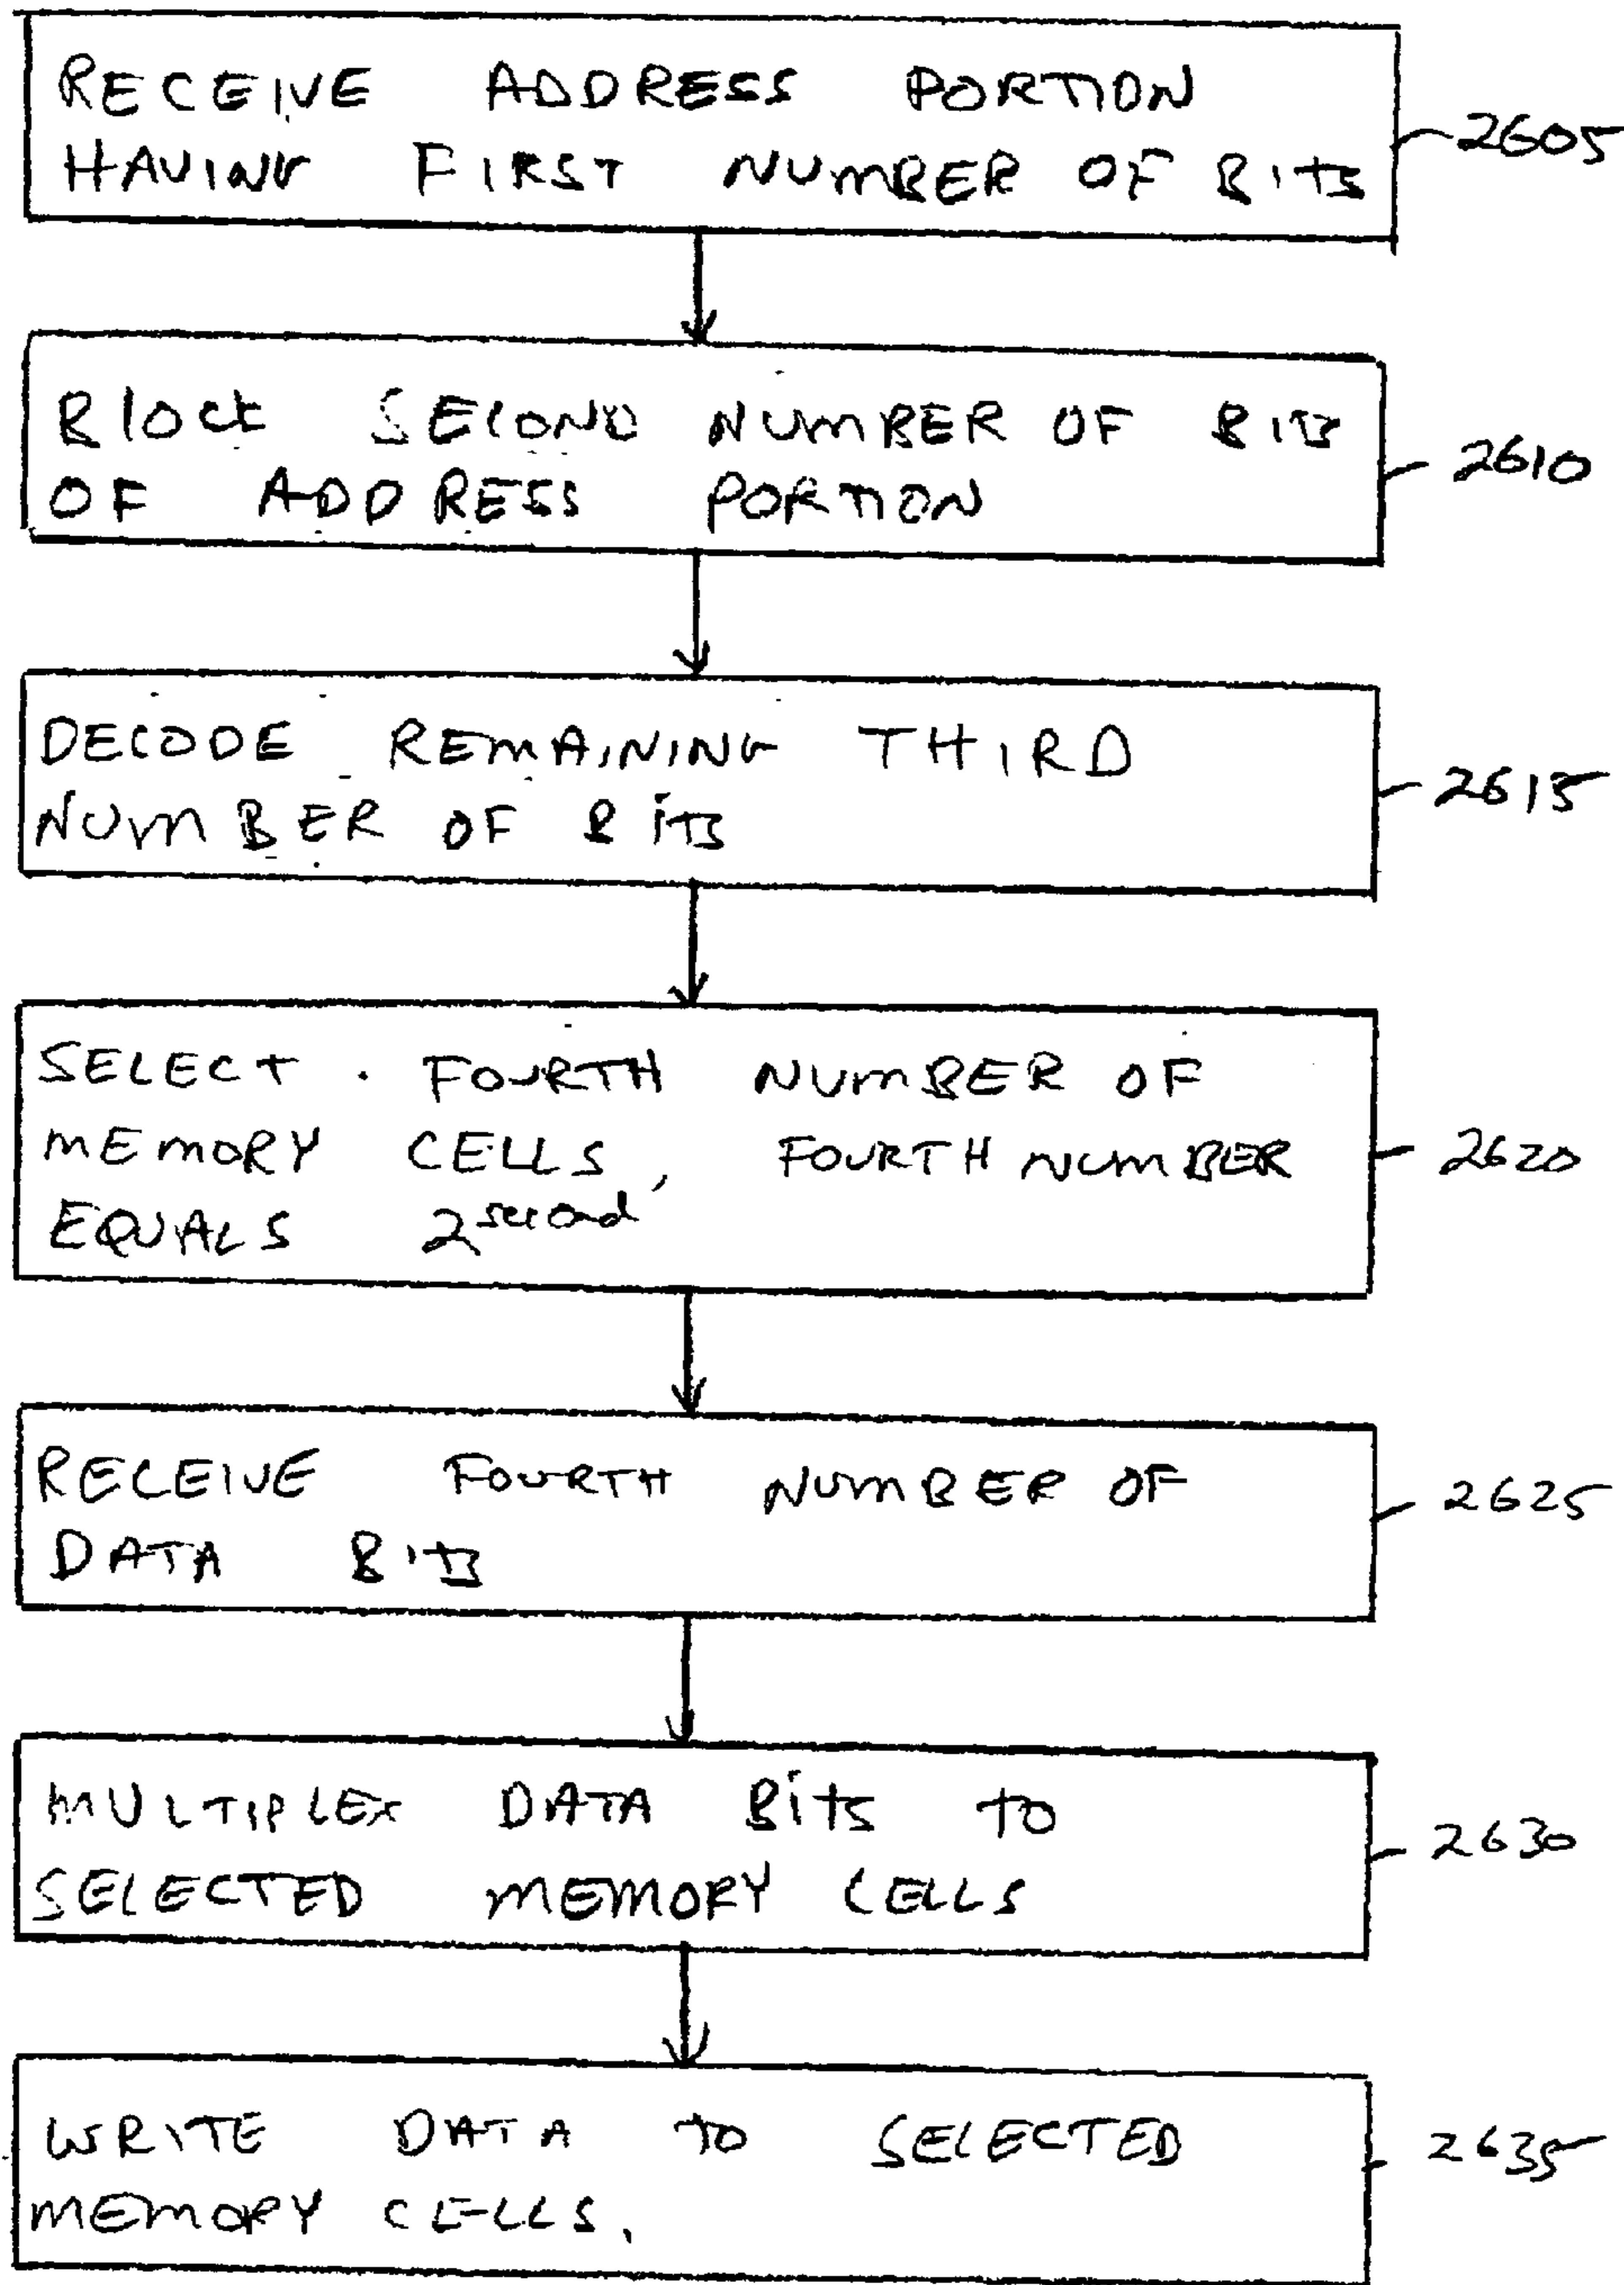 RECEIVE ADDRESS PORTION
HAVING FIRST NUMBER OF BITS
2605
BLOCK SECOND NUMBER OF BITS
OF ADDRESS PORTION
2610
DECODE REMAINING THIRD
NUMBER OF BITS
2615
SELECT FOURTH NUMBER OF
MEMORY CELLS, FOURTH NUMBER
EQUALS 2^second
2620
RECEIVE FOURTH NUMBER OF
DATA BITS
2625
MULTIPLEX DATA BITS TO
SELECTED MEMORY CELLS
2630
WRITE DATA TO SELECTED
MEMORY CELLS.
2635